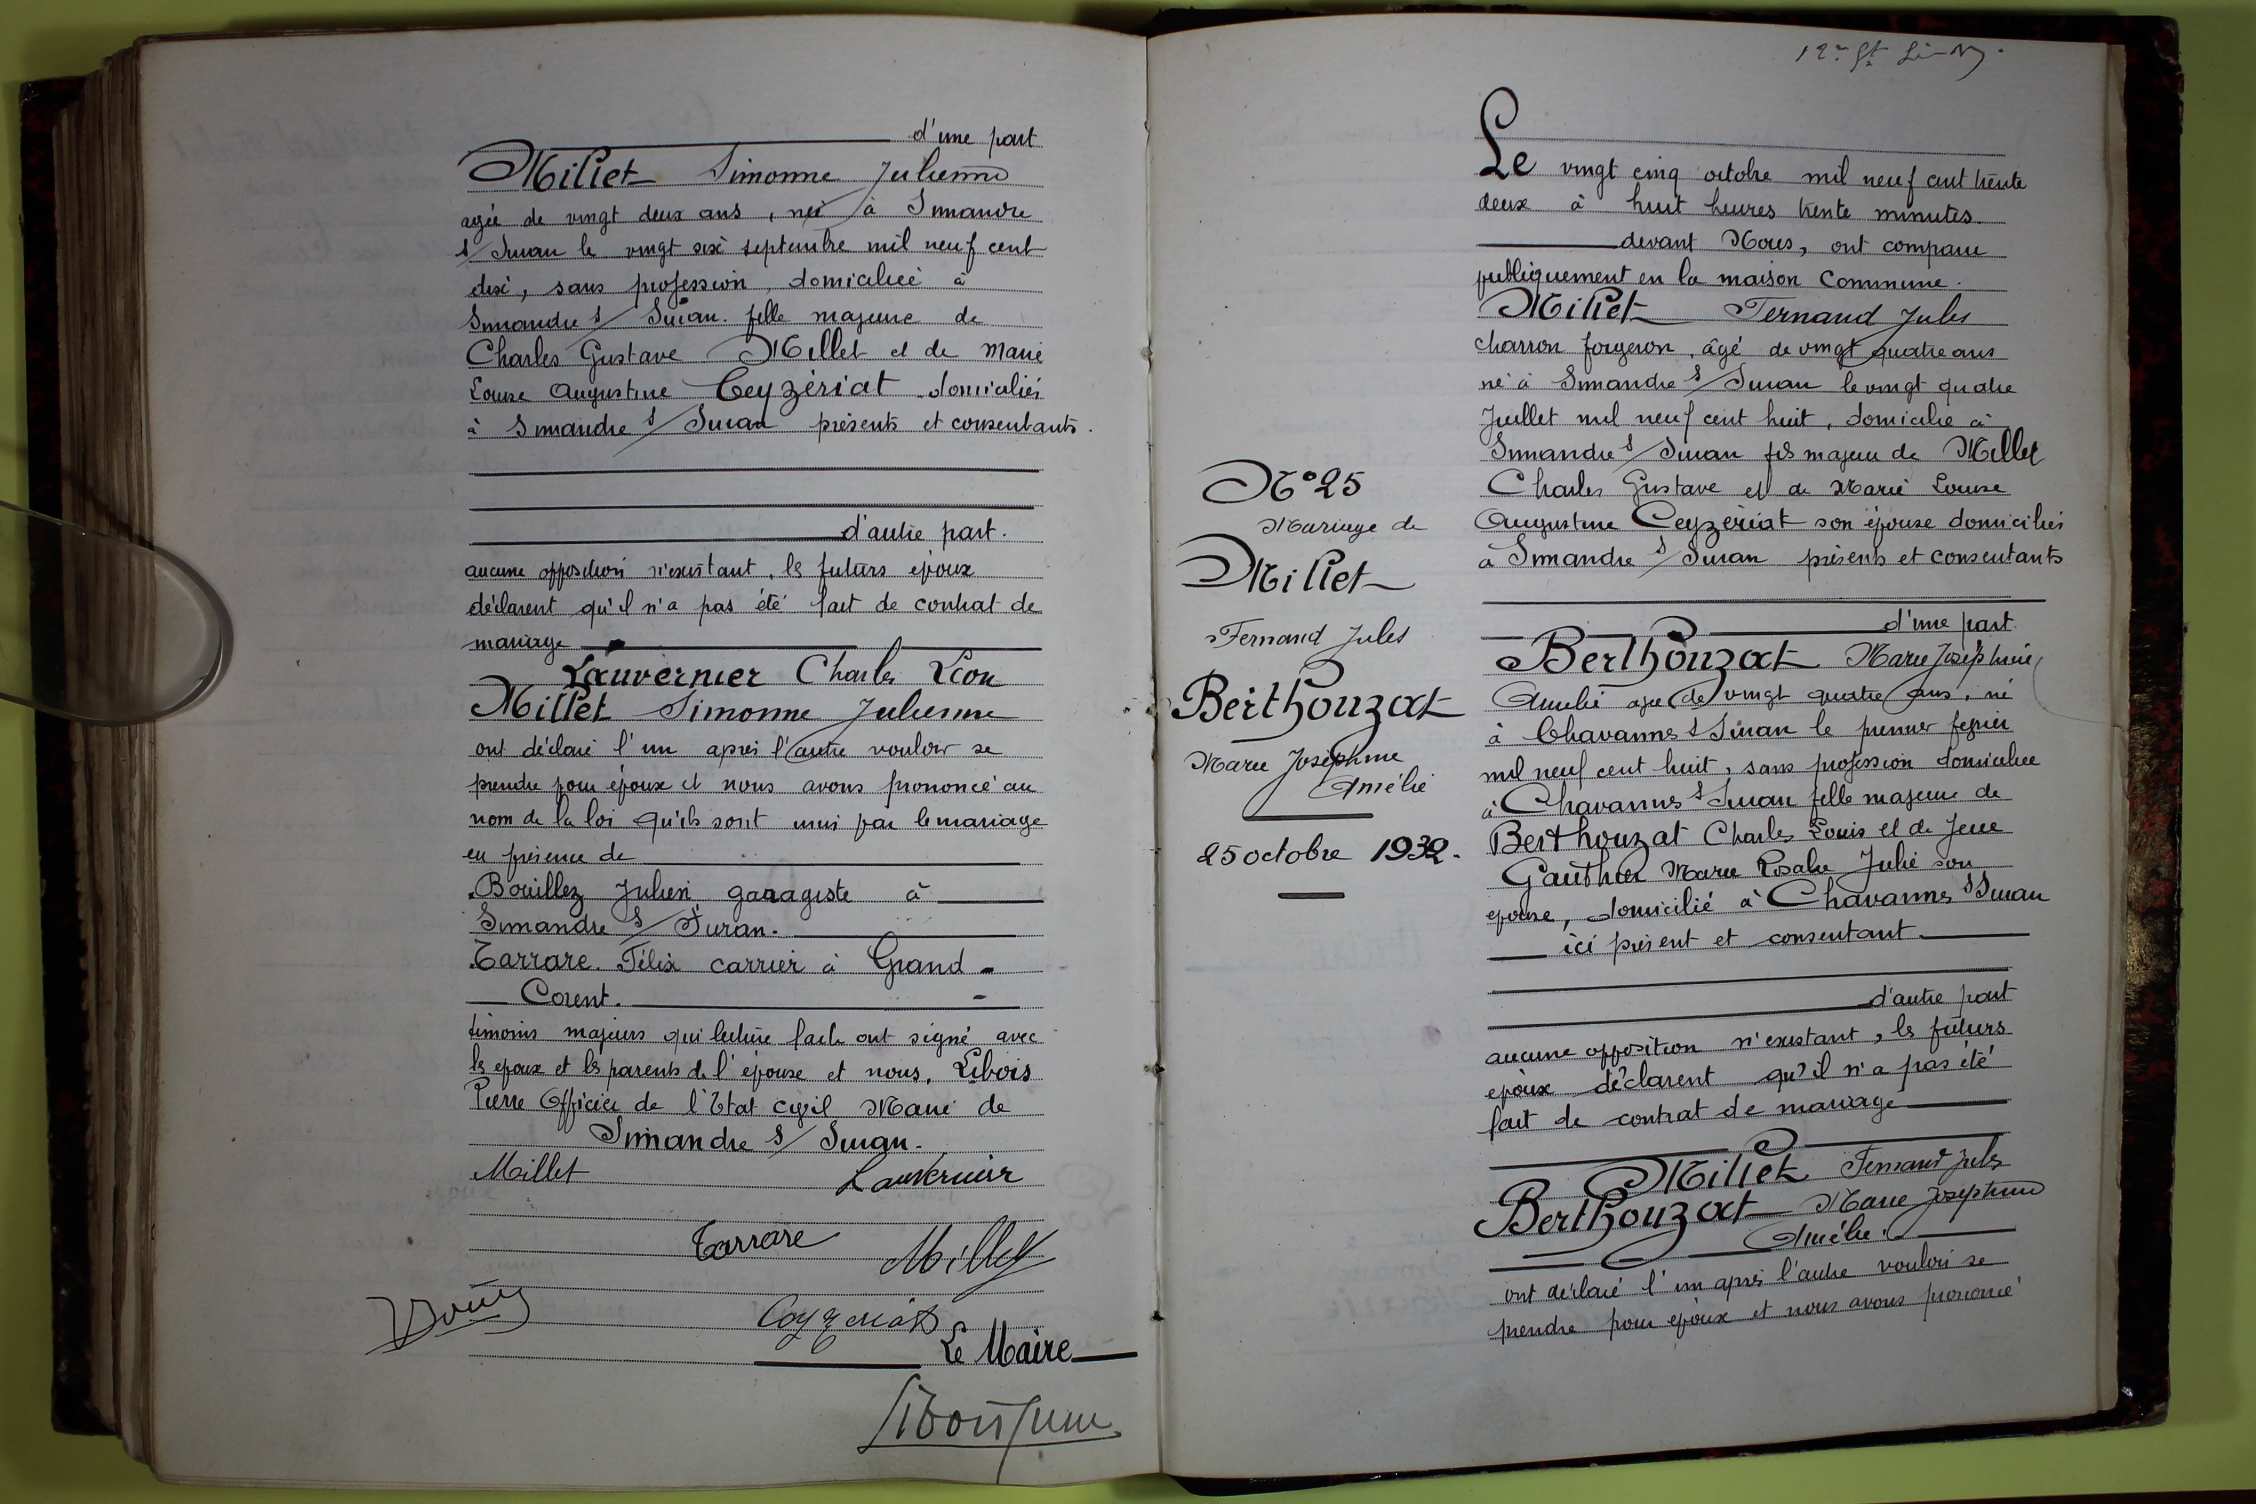 d'une part
Millet Simonne Julienne
agée de vingt deux ans, née à Simandre
s/ Suran le vingt six septembre mil neuf cent
dix, sans profession, domiciliée à
Simandre s/ Suran. fille majeure de
Charles Gustave Millet et de Marie
Louise Augustine Ceyzériat domiciliés
à Simandre s/ Suran présents et consentants.
d'autre part.
aucune opposition n'existant, les futurs époux
déclarent qu'il n'a pas été fait de contrat de
mariage
Lauvernier Charles Léon
Millet Simonne Julienne
ont déclaré l'un après l'autre vouloir se
prendre pour époux et nous avons prononcé au
nom de la loi qu'ils sont unis par le mariage
en présence de
Bouillez Julien garagiste à
Simandre s/ Suran.
Tarrare Félix carrier à Grand-
Corent.
témoins majeurs qui lecture faite ont signé avec
les epoux et les parents de l'épouse et nous, Libois
Pierre Officier de l'Etat civil Maire de
Simandre s/ Suran.
Millet Lauvernier
Tarrare Millet
Ceyzeriat
Le Maire
12e St
N° 25
Mariage de
Millet
Fernand Jules
Berthouzat
Marie Joséphine
Amélie
25 octobre 1932.
Le vingt cinq octobre mil neuf cent trente
deux à huit heures trente minutes.
devant Nous, ont comparu
publiquement en la maison Commune.
Millet Fernand Jules
charron forgeron, âgé de vingt quatre ans
né à Simandre s/ Suran le vingt quatre
Juillet mil neuf cent huit, domicilié à
Simandre s/ Suran fils majeur de Millet
Charles Gustave et de Marie Louise
Augustine Ceyzériat son épouse domiciliés
à Simandre s/ Suran présents et consentants
d'une part
Berthouzat Marie Joséphine
Amélie agée de vingt quatre ans, né
à Chavannes s/ Suran le premier fevrier
mil neuf cent huit, sans profession domiciliée
à Chavannes s/ Suran fille majeure de
Berthouzat Charles Louis et de feue
Gauthier Marie Rosalie Julie son
epouse, domicilié à Chavannes s/ Suran
ici présent et consentant.
d'autre part
aucune opposition n'existant, les futurs
epoux déclarent qu'il n'a pas été
fait de contrat de mariage
Millet Fernand Jules
Berthouzat Marie Joséphine
Amélie.
ont déclaré l'un après l'autre vouloir se
prendre pour epoux et nous avons prononcé